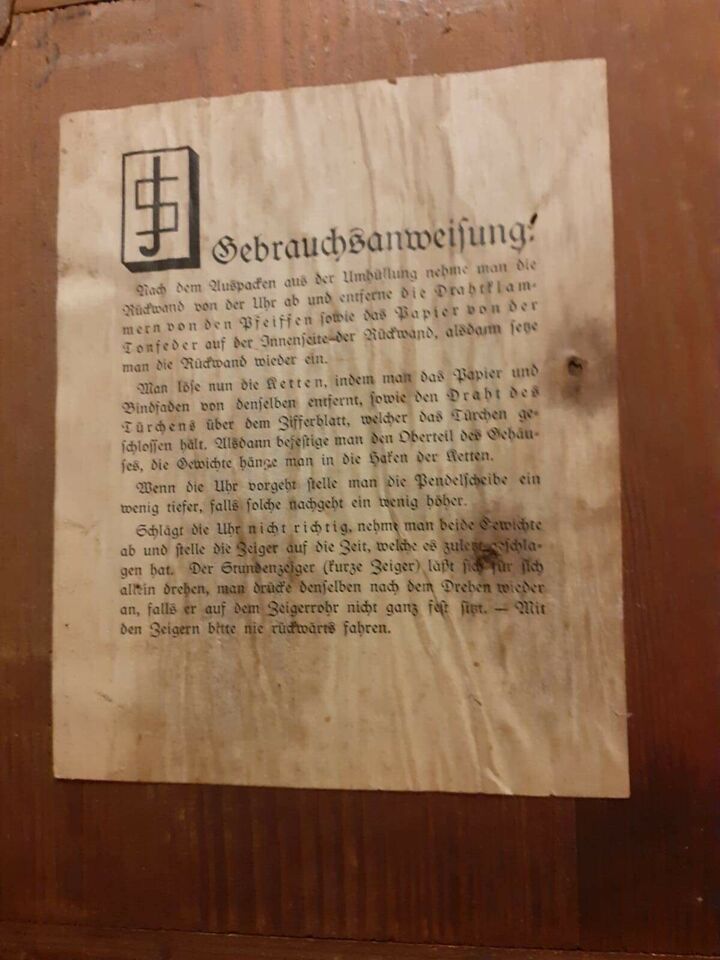 JS
Gebrauchsanweisung!
Nach dem Auspacken aus der Umhüllung nehme man die
Rückwand von der Uhr ab und entferne die Drahtklam-
mern von den Pfeiffen sowie das Papier von der
Tonfeder auf der Innenseite der Rückwand, alsdann setze
man die Rückwand wieder ein.
Man löse nun die Ketten, indem man das Papier und
Bindfaden von denselben entfernt, sowie den Draht des
Türchens über dem Zifferblatt, welcher das Türchen ge-
schlossen hält. Alsdann befestige man den Oberteil des Gehäu-
ses, die Gewichte hänge man in die Haken der Ketten.
Wenn die Uhr vorgeht stelle man die Pendelscheibe ein
wenig tiefer, falls solche nachgeht ein wenig höher.
Schlägt die Uhr nicht richtig, nehme man beide Gewichte
ab und stelle die Zeiger auf die Zeit, welche es zuletzt geschla-
gen hat. Der Stundenzeiger (kurze Zeiger) läßt sich für sich
allein drehen, man drücke denselben nach dem Drehen wieder
an, falls er auf dem Zeigerrohr nicht ganz fest sitzt. — Mit
den Zeigern bitte nie rückwärts fahren.